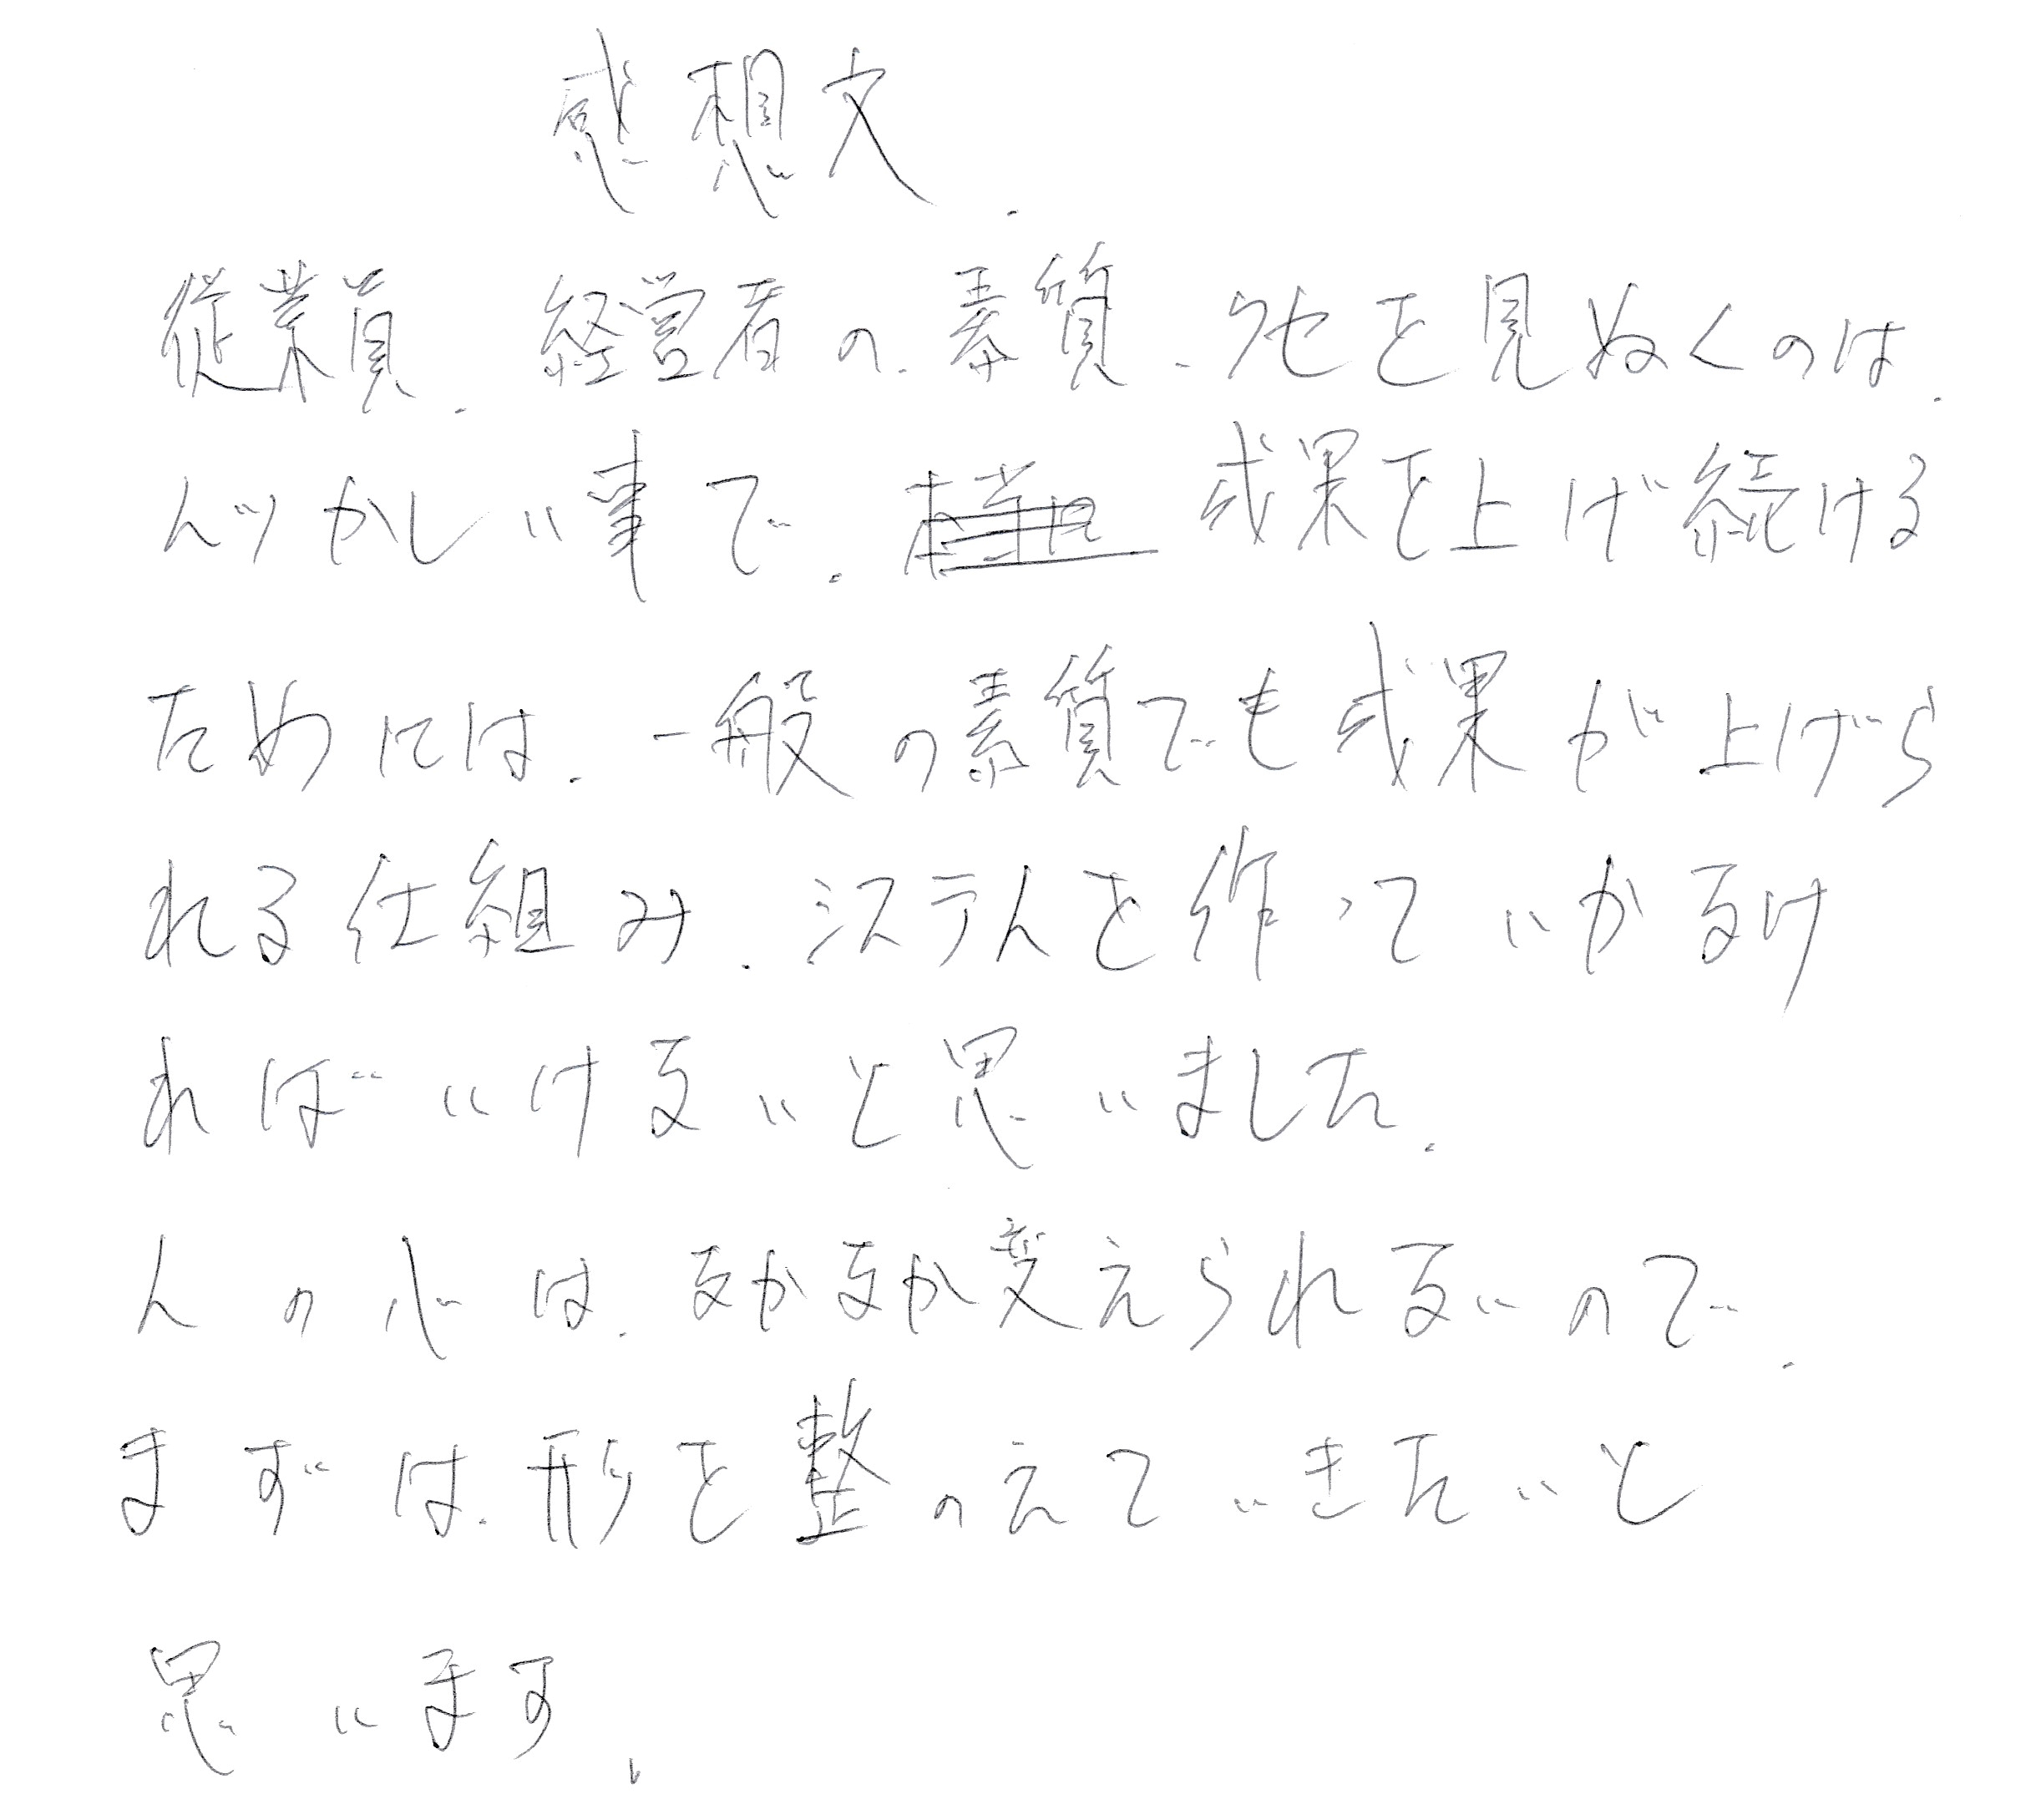 感想文.
従業員、経営者の素質、クセを見ぬくのは、
んづかしい事で、成果を上げ続ける
ためには、一般の素質でも成果が上げら
れる仕組み、システムを作っていかなけ
ればいけないと思いました。
人の心は、なかなか変えられないので、
まずは、形を整のえていきたいと
思います、